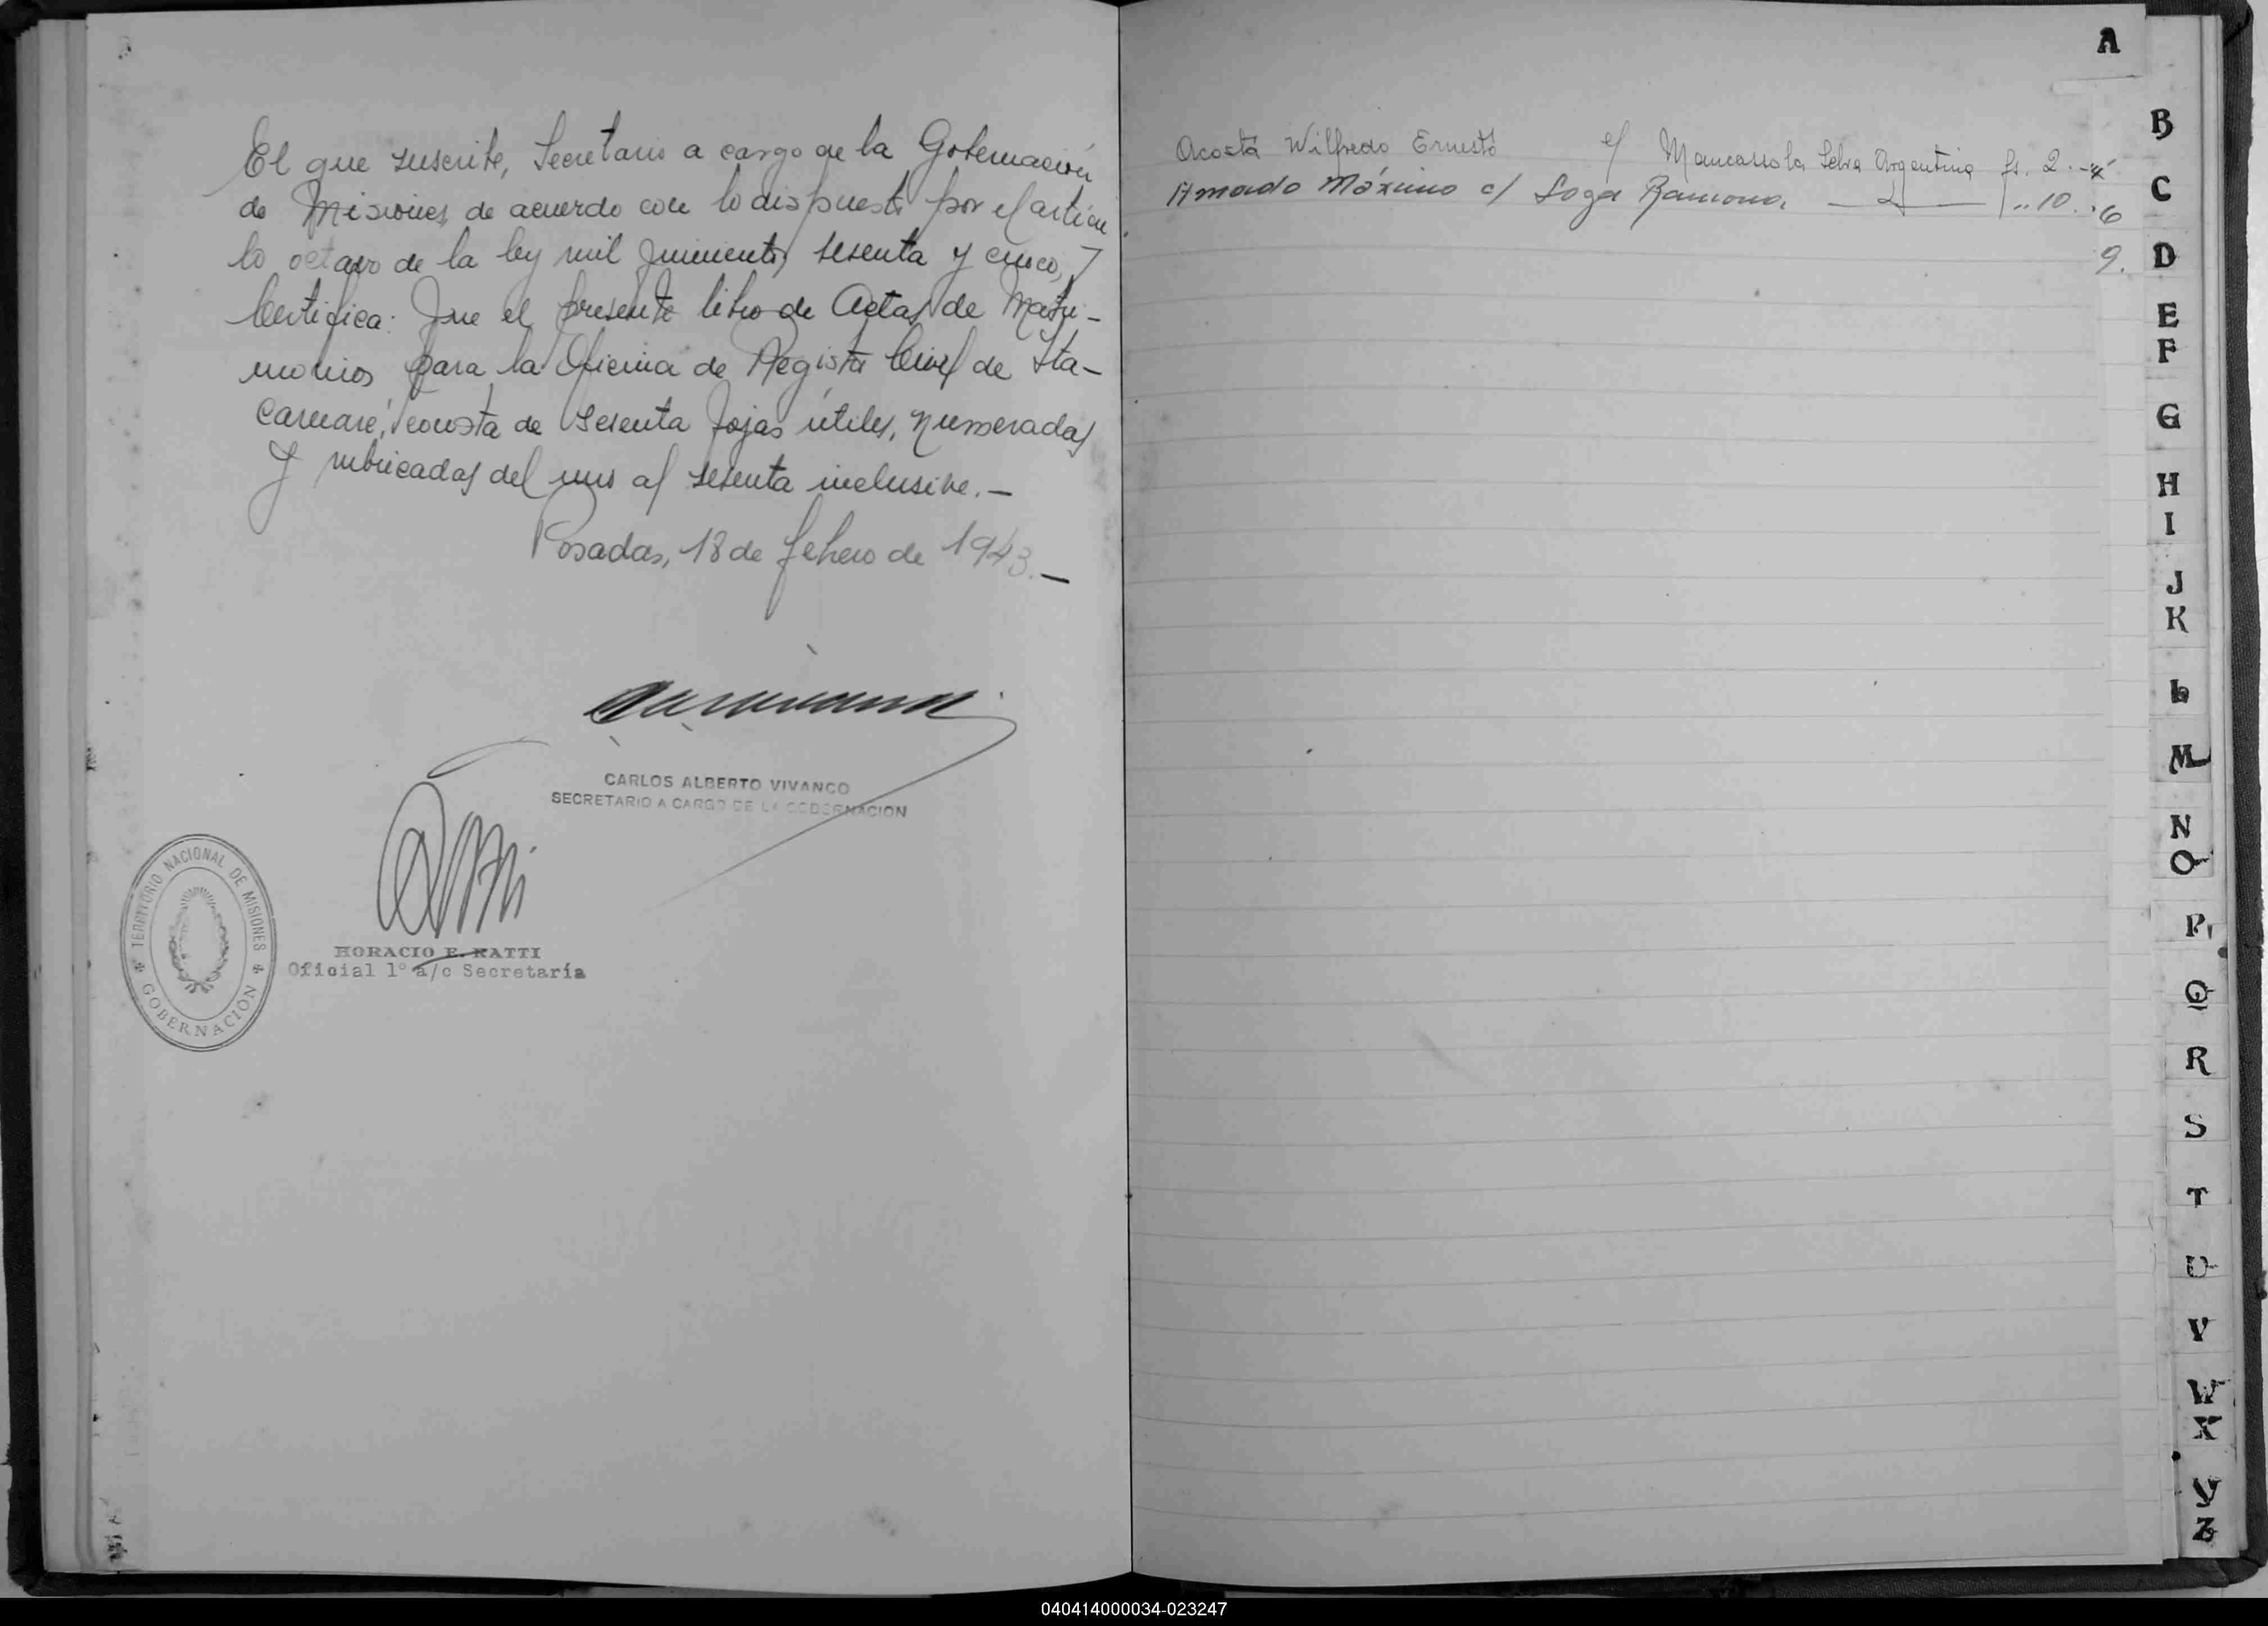 El que suscribe, Secretario a cargo de la Gobernación
de Misiones, de acuerdo con lo dispuesto por el artícu
lo octavo de la ley mil quinientos sesenta y cinco,
Certifica: Que el presente libro de Actas de Matri-
monios para la Oficina de Registro Civil de Ita-
caruaré, consta de sesenta fojas útiles, numeradas
y rubricadas del uno al sesenta inclusive.-
Posadas, 18 de febrero de 1943.-
CARLOS ALBERTO VIVANCO
SECRETARIO A CARGO DE LA GOBERNACION
HORACIO E. RATTI
Oficial 1° a/c Secretaría
TERRITORIO NACIONAL DE MISIONES
GOBERNACIÓN
Acosta Wilfredo Ernesto c/ Selva Argentina fs. 2.-4
Amado Máximo c/ Soga Ramona. " 10. " 6
9.
A
B
C
D
E
F
G
H
I
J
K
L
M
N
O
P
Q
R
S
T
U
V
W
X
Y
Z
040414000034-023247